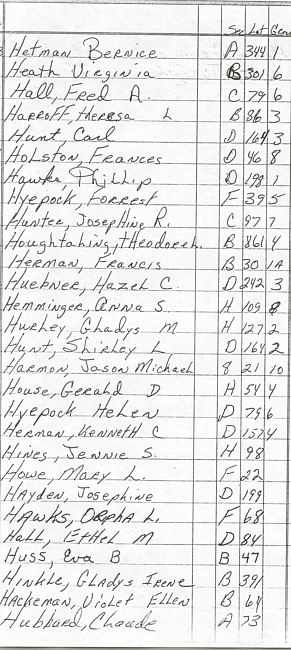 Sec Lot Grave
Hetman Bernice A 344 1
Heath Virginia B 301 6
Hall, Fred A. C 79 6
Harroff, Theresa L B 86 3
Hunt, Carl D 164 3
Holston, Frances D 46 8
Hawks, Phillip D 198 1
Hyepock, Forrest F 39 5
Hunter, Josephine R. C 97 7
Houghtaling, Theodore H. B 861 4
Herman, Francis B 30 1A
Huebner, Hazel C. D 242 3
Hemminger, Anna S. H 109 8
Hurley, Gladys M H 127 2
Hunt, Shirley L D 164 2
Harmon, Jason Michael 8 21 10
House, Gerald D H 54 4
Hyepock Helen D 79 6
Herman, Kenneth C D 157 4
Hines, Jennie S. H 98
Howe, Mary L. F 22
Hayden, Josephine D 199
Hawks, Orpha L. F 68
Hall, Ethel M D 84
Huss, Eva B B 47
Hinkle, Gladys Irene B 391
Hackeman, Violet Ellen B 64
Hubbard, Claude A 73